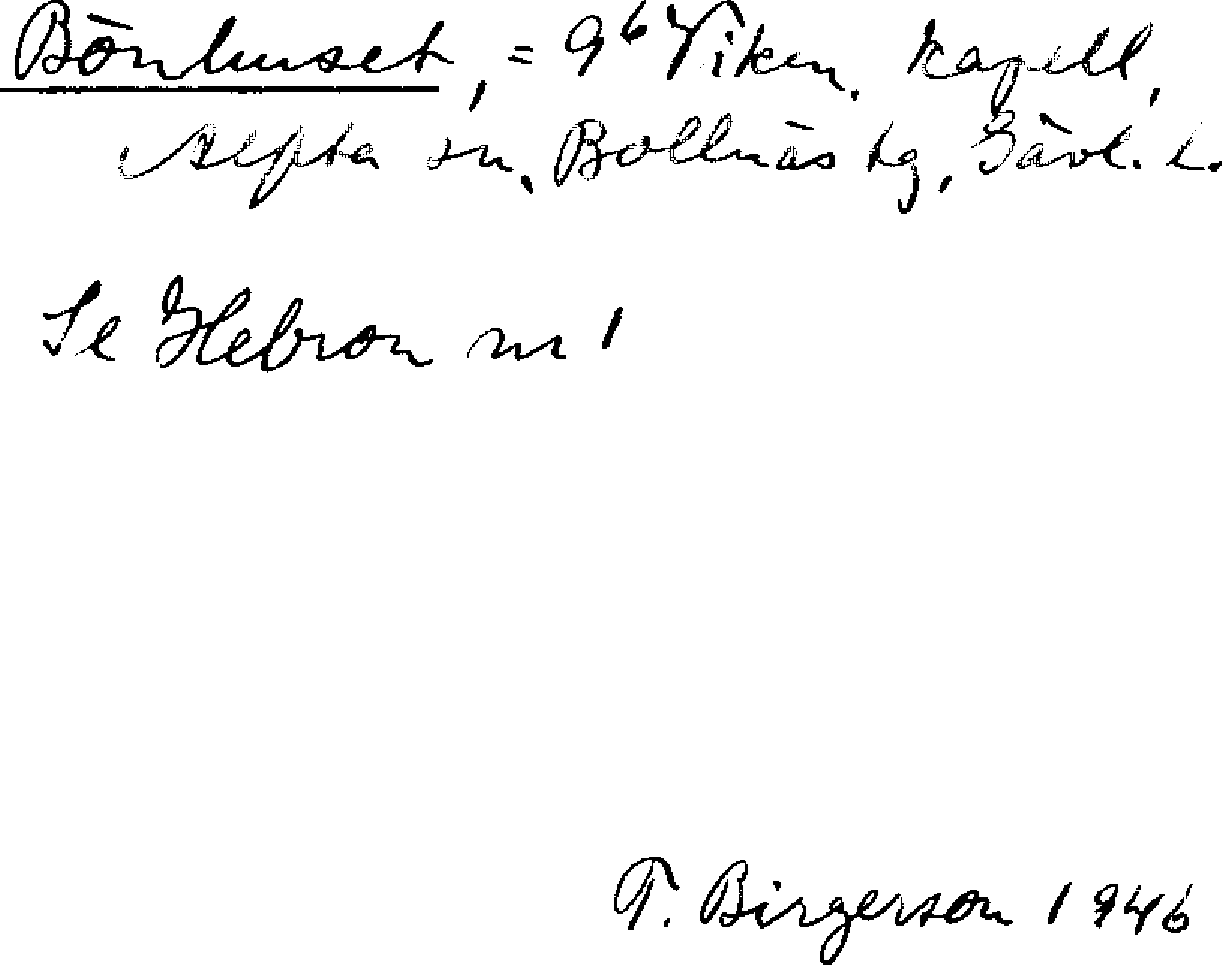 Bönhuset, = 9⁶ Viken. kapell,
Alfta sn, Bollnäs tg, Gävl. l.
Se Hebron nr 1
T. Birgerson 1946